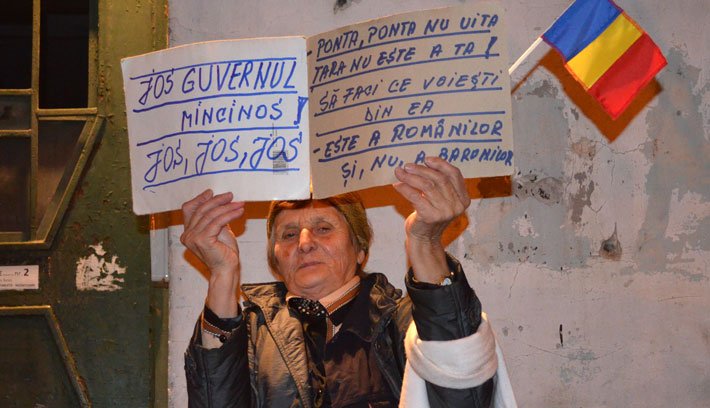 JOS GUVERNUL
MINCINOS !
JOS, JOS, JOS
- PONTA, PONTA NU UITA
ȚARA NU ESTE A TA !
SĂ FACI CE VOIEȘTI
DIN EA
- ESTE A ROMÂNILOR
ȘI, NU, A BARONILOR
2